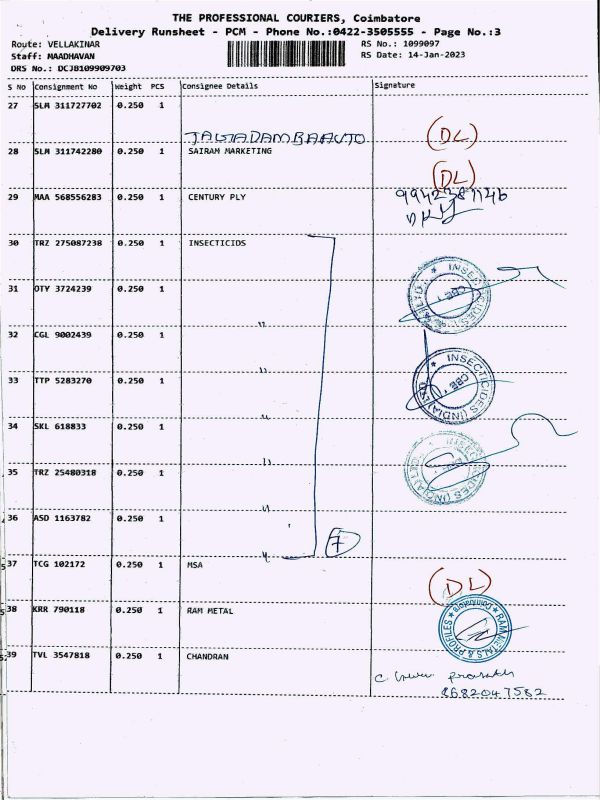 THE PROFESSIONAL COURIERS, Coimbatore
Delivery Runsheet - PCM - Phone No.:0422-3505555 - Page No.:3
Route: VELLAKINAR RS No.: 1099097
Staff: MAADHAVAN RS Date: 14-Jan-2023
DRS No.: DCJB109909703
S No Consignment No Weight PCS Consignee Details Signature
27 SLM 311727702 0.250 1
JAGADAMBA AUTO (DL)
28 SLM 311742280 0.250 1 SAIRAM MARKETING
(DL)
29 MAA 568556283 0.250 1 CENTURY PLY 9942381146
30 TRZ 275087238 0.250 1 INSECTICIDS
INSECTICIDES
CBE
31 OTY 3724239 0.250 1
"
32 CGL 9002439 0.250 1
"
INSECTICIDES (INDIA) LTD
CBE
33 TTP 5283270 0.250 1
"
34 SKL 618833 0.250 1
"
INSECTICIDES (INDIA) LTD
35 TRZ 25480318 0.250 1
"
36 ASD 1163782 0.250 1
" 7
37 TCG 102172 0.250 1 MSA
(DL)
38 KRR 790118 0.250 1 RAM METAL
RAM METALS & PROFILES
Coimbatore
39 TVL 3547818 0.250 1 CHANDRAN
8682047582